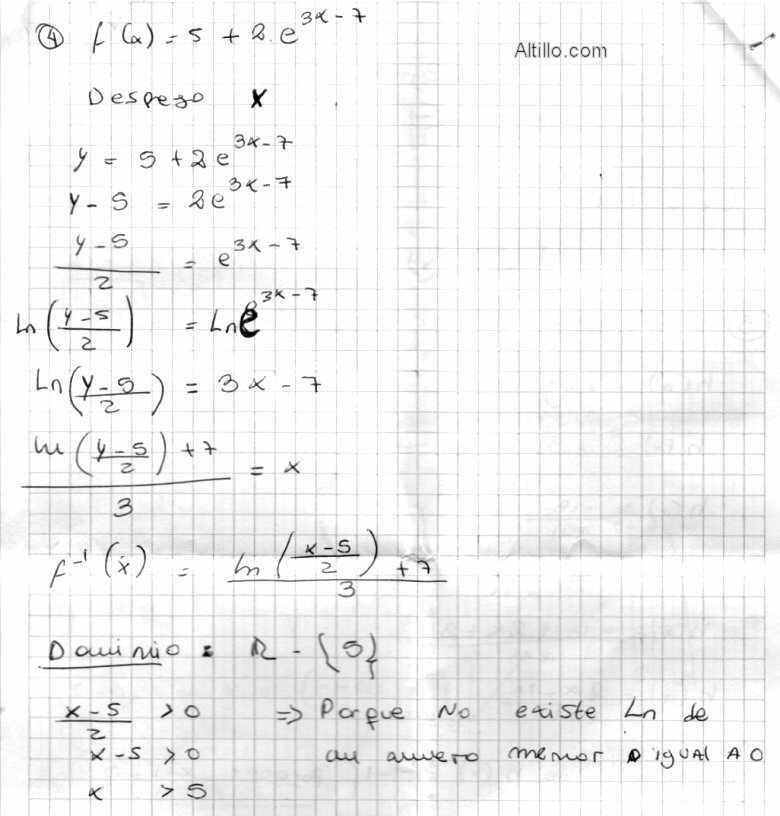 ④ f(x) = 5 + 2 . e^{3x-7}
Altillo.com
Despejo x
y = 5 + 2e^{3x-7}
y - 5 = 2e^{3x-7}
\frac{y-5}{2} = e^{3x-7}
Ln(\frac{y-5}{2}) = Ln e^{3x-7}
Ln(\frac{y-5}{2}) = 3x - 7
\frac{ln(\frac{y-5}{2}) + 7}{3} = x
f^{-1}(x) = \frac{ln(\frac{x-5}{2}) + 7}{3}
Dominio : R - {5}
\frac{x-5}{2} > 0 => Porque No existe Ln de
x-5 > 0 un numero menor o igual A 0
x > 5